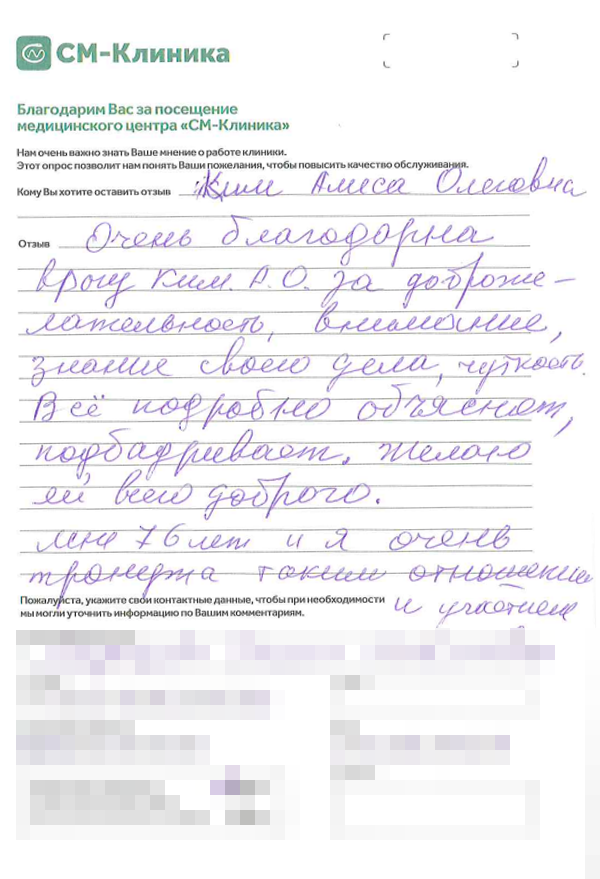 СМ-Клиника
Благодарим Вас за посещение
медицинского центра «СМ-Клиника»
Нам очень важно знать Ваше мнение о работе клиники.
Этот опрос позволит нам понять Ваши пожелания, чтобы повысить качество обслуживания.
Кому Вы хотите оставить отзыв Ким Алиса Олеговна
Отзыв Очень благодарна
врачу Ким. А.О. за доброже-
лательность, внимание,
знание своего дела, чуткость.
Всё подробно объясняет,
подбадривает. Желаю
ей всего доброго.
Мне 76 лет и я очень
тронута таким отношением
Пожалуйста, укажите свои контактные данные, чтобы при необходимости
мы могли уточнить информацию по Вашим комментариям.
и участием